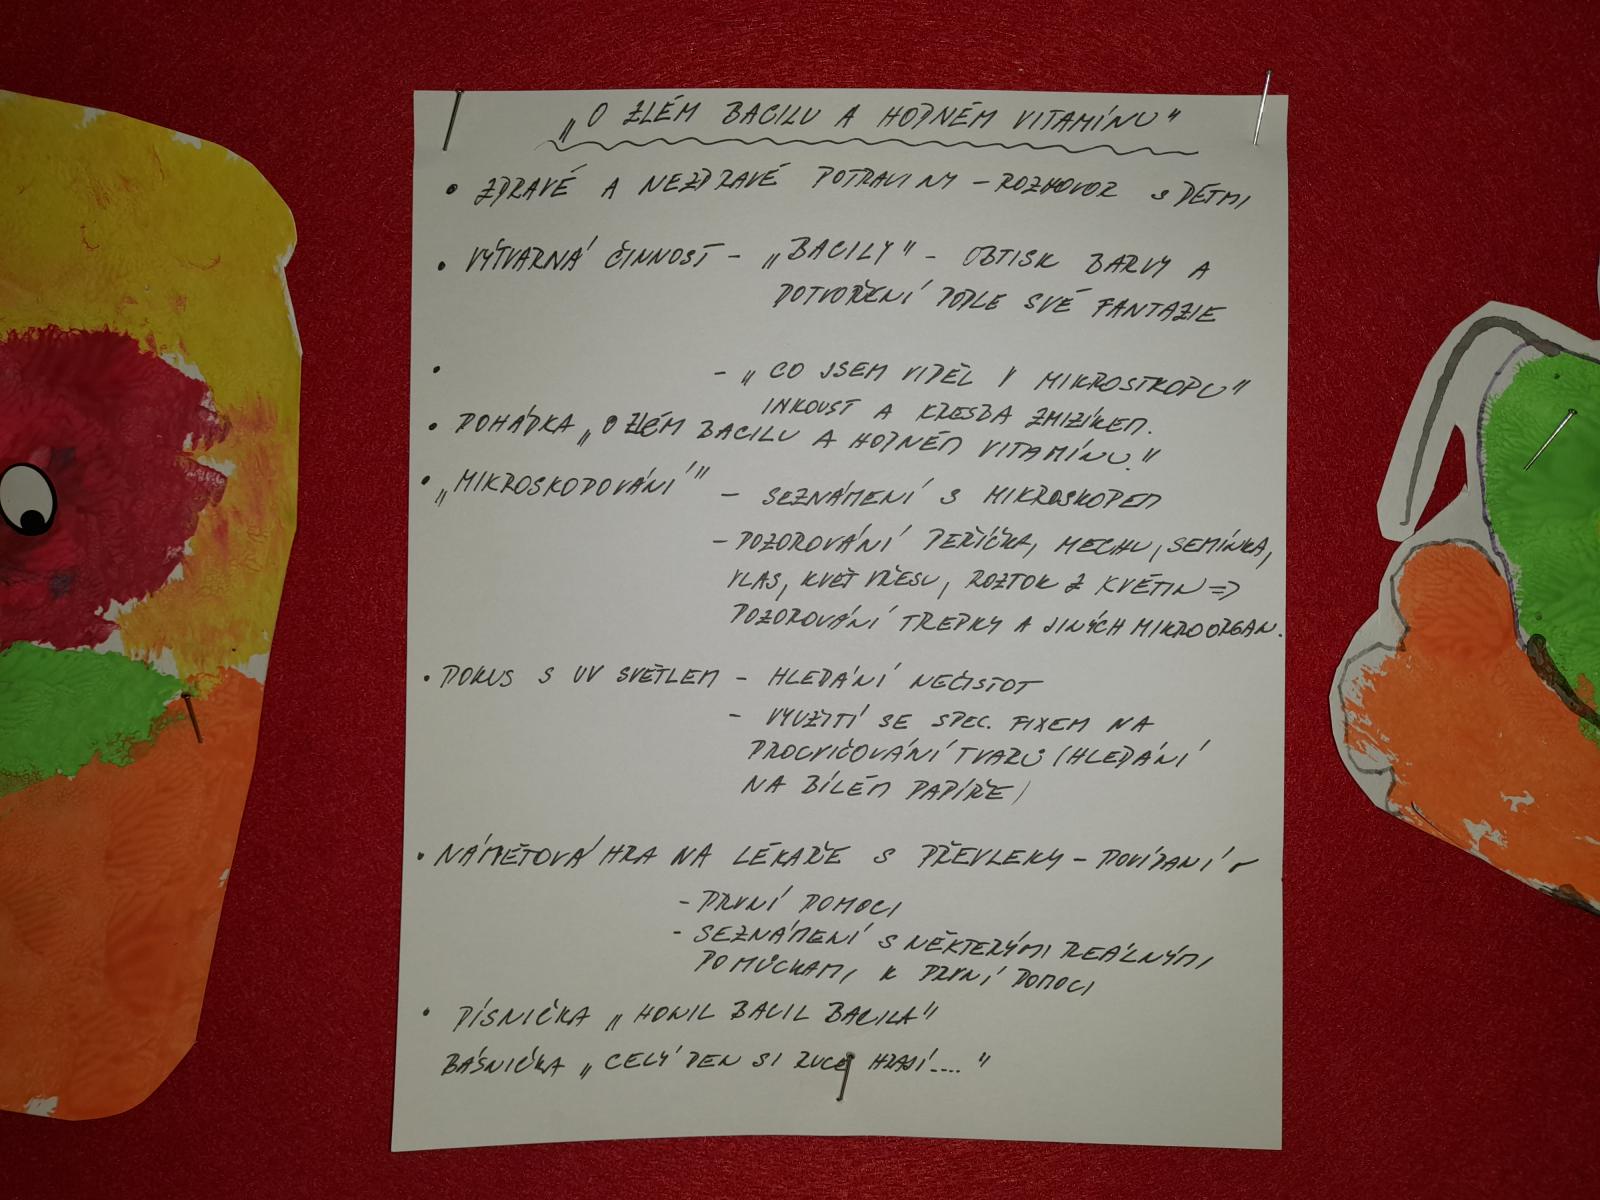 „O ZLÉM BACILU A HODNÉM VITAMÍNU"
• ZDRAVÉ A NEZDRAVÉ POTRAVINY - ROZHOVOR S DĚTMI
• VÝTVARNÁ ČINNOST - „BACILY" - OBTISK BARVY A
DOTVOŘENÍ PODLE SVÉ FANTAZIE
• - „CO JSEM VIDĚL V MIKROSKOPU"
INKOUST A KRESBA ZMIZÍKEM.
• POHÁDKA „O ZLÉM BACILU A HODNÉM VITAMÍNU."
• „MIKROSKOPOVÁNÍ" - SEZNÁMENÍ S MIKROSKOPEM
- POZOROVÁNÍ PEŘÍČKA, MECHU, SEMÍNKA,
VLAS, KVĚT VŘESU, ROZTOK Z KVĚTIN =>
POZOROVÁNÍ TREPKY A JINÝCH MIKROORGAN.
• POKUS S UV SVĚTLEM - HLEDÁNÍ NEČISTOT
- VYUŽITÍ SE SPEC. FIXEM NA
PROCVIČOVÁNÍ TVARŮ (HLEDÁNÍ
NA BÍLÉM PAPÍŘE)
• NÁMĚTOVÁ HRA NA LÉKAŘE S PŘEVLEKY - POVÍDÁNÍ O
- PRVNÍ POMOCI
- SEZNÁMENÍ S NĚKTERÝMI REÁLNÝMI
POMŮCKAMI K PRVNÍ POMOCI
• PÍSNIČKA „HONIL BACIL BACILA"
BÁSNIČKA „CELÝ DEN SI RUCE HRAJÍ...."